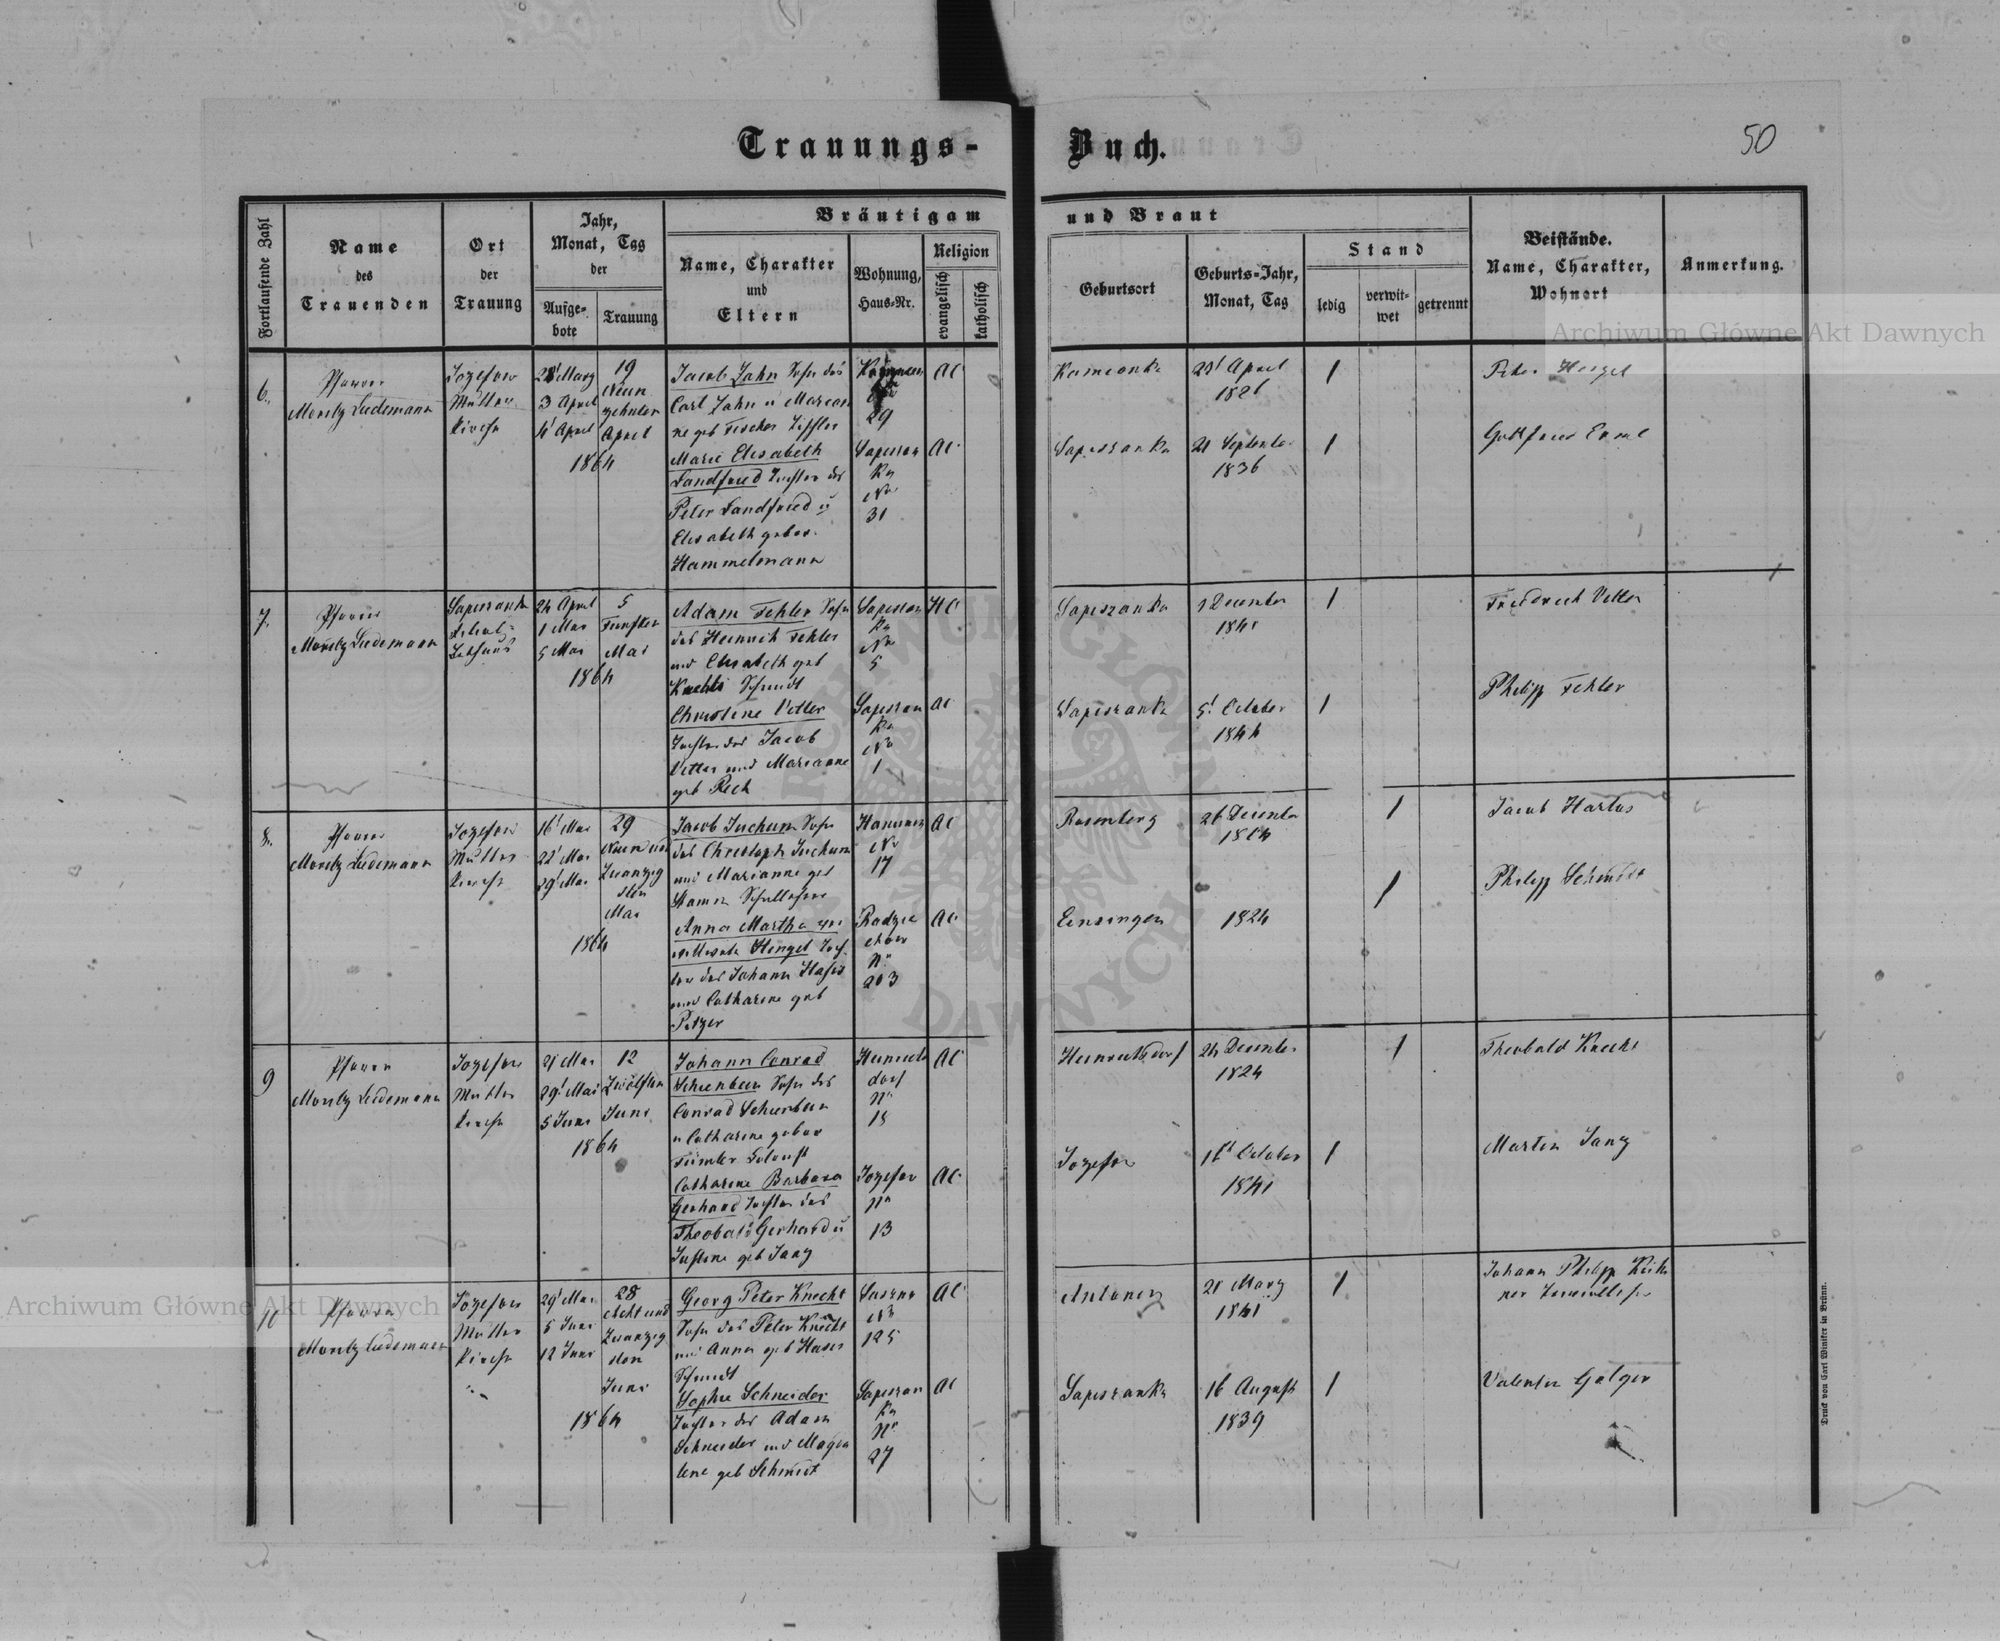 Trauungs-Buch.
50
Fortlaufende Zahl
Name
des
Trauenden
Ort
der
Trauung
Jahr,
Monat, Tag
der
Aufge-
bote
Trauung
Bräutigam und Braut
Name, Charakter
und
Eltern
Wohnung,
Haus-Nr.
Religion
evangelisch
katholisch
Geburtsort
Geburts-Jahr,
Monat, Tag
Stand
ledig
verwit-
wet
getrennt
Beistände.
Name, Charakter,
Wohnort
Anmerkung.
Archiwum Główne Akt Dawnych
6.
Pfarrer
Moritz Ludemann
Jozefow
Mutter
Kirche
3 April
April
1864
19
Neun
zehnten
April
Jacob Jahn Sohn des
Carl Jahn u Marian
ne geb Fischer
Marie Elisabeth
Landfried Tochter des
Peter Landfried u
Elisabeth gebor.
Hammelmann
29
Sapiezan
ka
Nr
31
AC
AC
Kamionka
April
1826
1
Sapiezanka
21 September
1836
1
Peter Hengel
Gottfried
7.
Pfarrer
Moritz Ludemann
Sapiezanka
Schul-
Bethaus
24 April
1 Mai
5 Mai
1864
5
Fünften
Mai
Adam Fehler Sohn
des Heinrich Fehler
und Elisabeth geb
Knecht Schmidt
Christine Vetter
Tochter des Jacob
Vetter und Marianne
geb Rech
Sapiezan
ka
Nr
5
Sapiezan
ka
Nr
1
HC
AC
Sapiezanka
December
1841
1
Sapiezanka
5 October
1844
1
Friedrich Vetter
Philipp Fehler
8.
Pfarrer
Moritz Ludemann
Jozefow
Mutter
Kirche
16 Mai
22 Mai
29 Mai
1864
29
Neun und
Zwanzig
sten
Mai
Jacob Juchum Sohn
des Christoph Juchum
und Marianne geb
Stamm Schullehrer
Anna Martha ver
wittwete Hengel Toch
ter des Johann
und Catharine geb
Petzer
Hanunin
Nr
17
Radzie
chow
Nr
203
AC
AC
Rosenberg
26 December
1804
1
Einsingen
1824
1
Jacob
Philipp Schmidt
9
Pfarrer
Moritz Ludemann
Jozefow
Mutter
Kirche
Mai
29 Mai
5 Juni
1864
12
Zwölften
Juni
Johann Conrad
Schienbein Sohn des
Conrad Schienbein
u Catharine gebor
Catharine Barbara
Gerhard Tochter des
Theobald Gerhard u
Justine geb Jany
Heinrichs
dorf
Nr
15
Jozefow
Nr
13
AC
AC
Heinrichsdorf
24 December
1824
1
Jozefow
October
1841
1
Theobald Knecht
Martin Jany
10
Pfarrer
Moritz Ludemann
Jozefow
Mutter
Kirche
29 Mai
5 Juni
12 Juni
1864
28
Acht und
Zwanzig
sten
Juni
Georg Peter Knecht
Sohn des Peter Knecht
und Anna geb
Schmidt
Sophie Schneider
Tochter des Adam
Schneider und Magda
lene geb Schmidt
Nr
125
Sapiezan
ka
Nr
27
AC
AC
März
1841
1
Sapiezanka
16 August
1839
1
Johann Philipp
Valentin
Archiwum Główne Akt Dawnych
Druck von Carl Winiker in Brünn.
ARCHIWUM GŁÓWNE AKT DAWNYCH